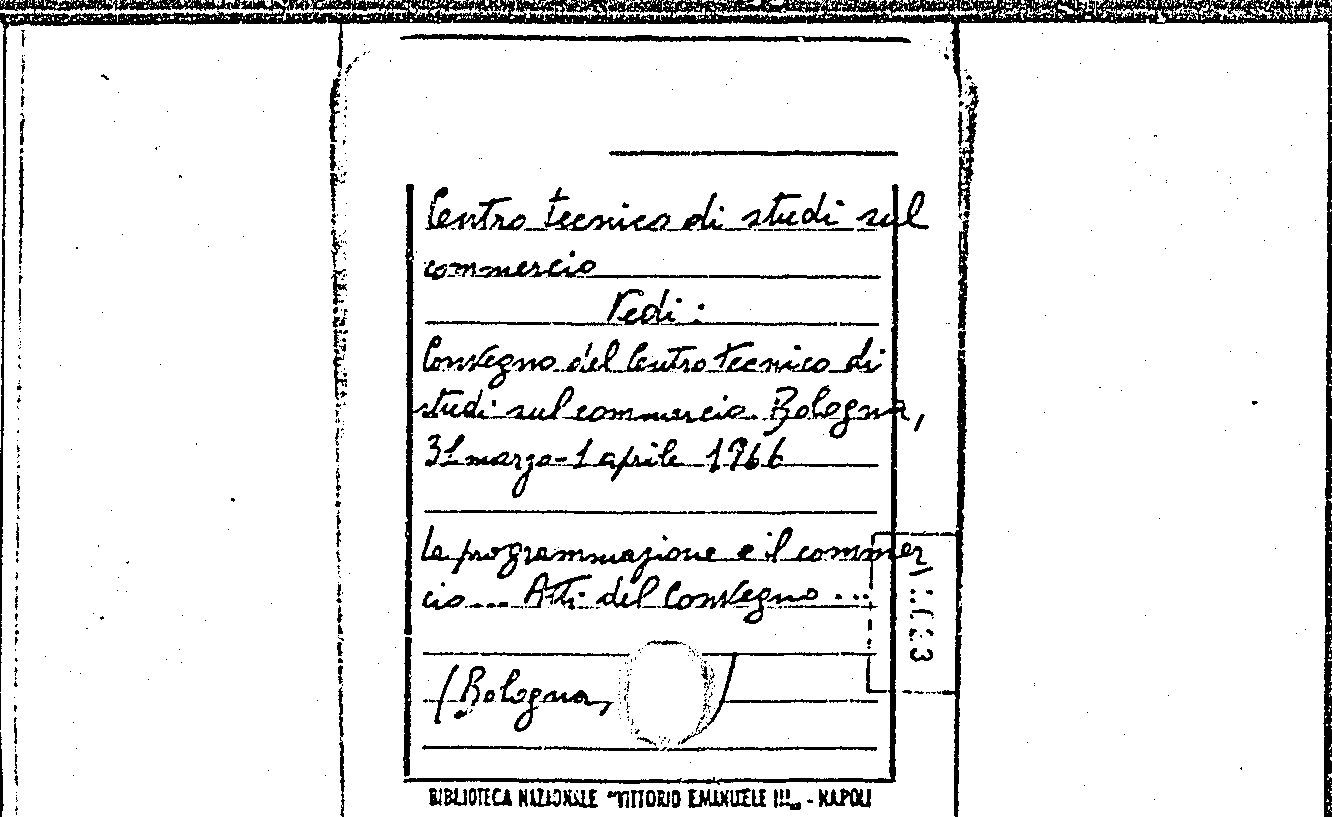 Centro tecnico di studi sul
commercio
Vedi:
Convegno del Centro tecnico di
studi sul commercio. Bologna,
31 marzo-1 aprile 1966
La programmazione e il commer
cio... Atti del Convegno...
(Bologna, )
BIBLIOTECA NAZIONALE "VITTORIO EMANUELE III" - NAPOLI